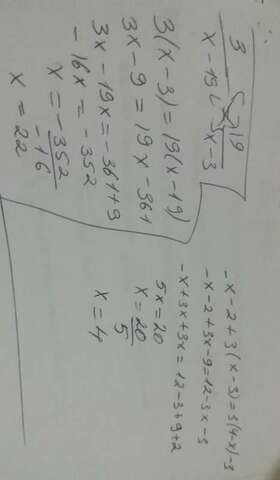 3 / x-19 19 / x-3
3(x-3)=19(x-19)
3x-9=19x-361
3x-19x=-361+9
-16x=-352
x=-352 / -16
x=22
-x-2+3(x-3)=3(4-x)-3
-x-2+3x-9=12-3x-3
-x+3x+3x=12-3+9+2
5x=20
x=20 / 5
x=4